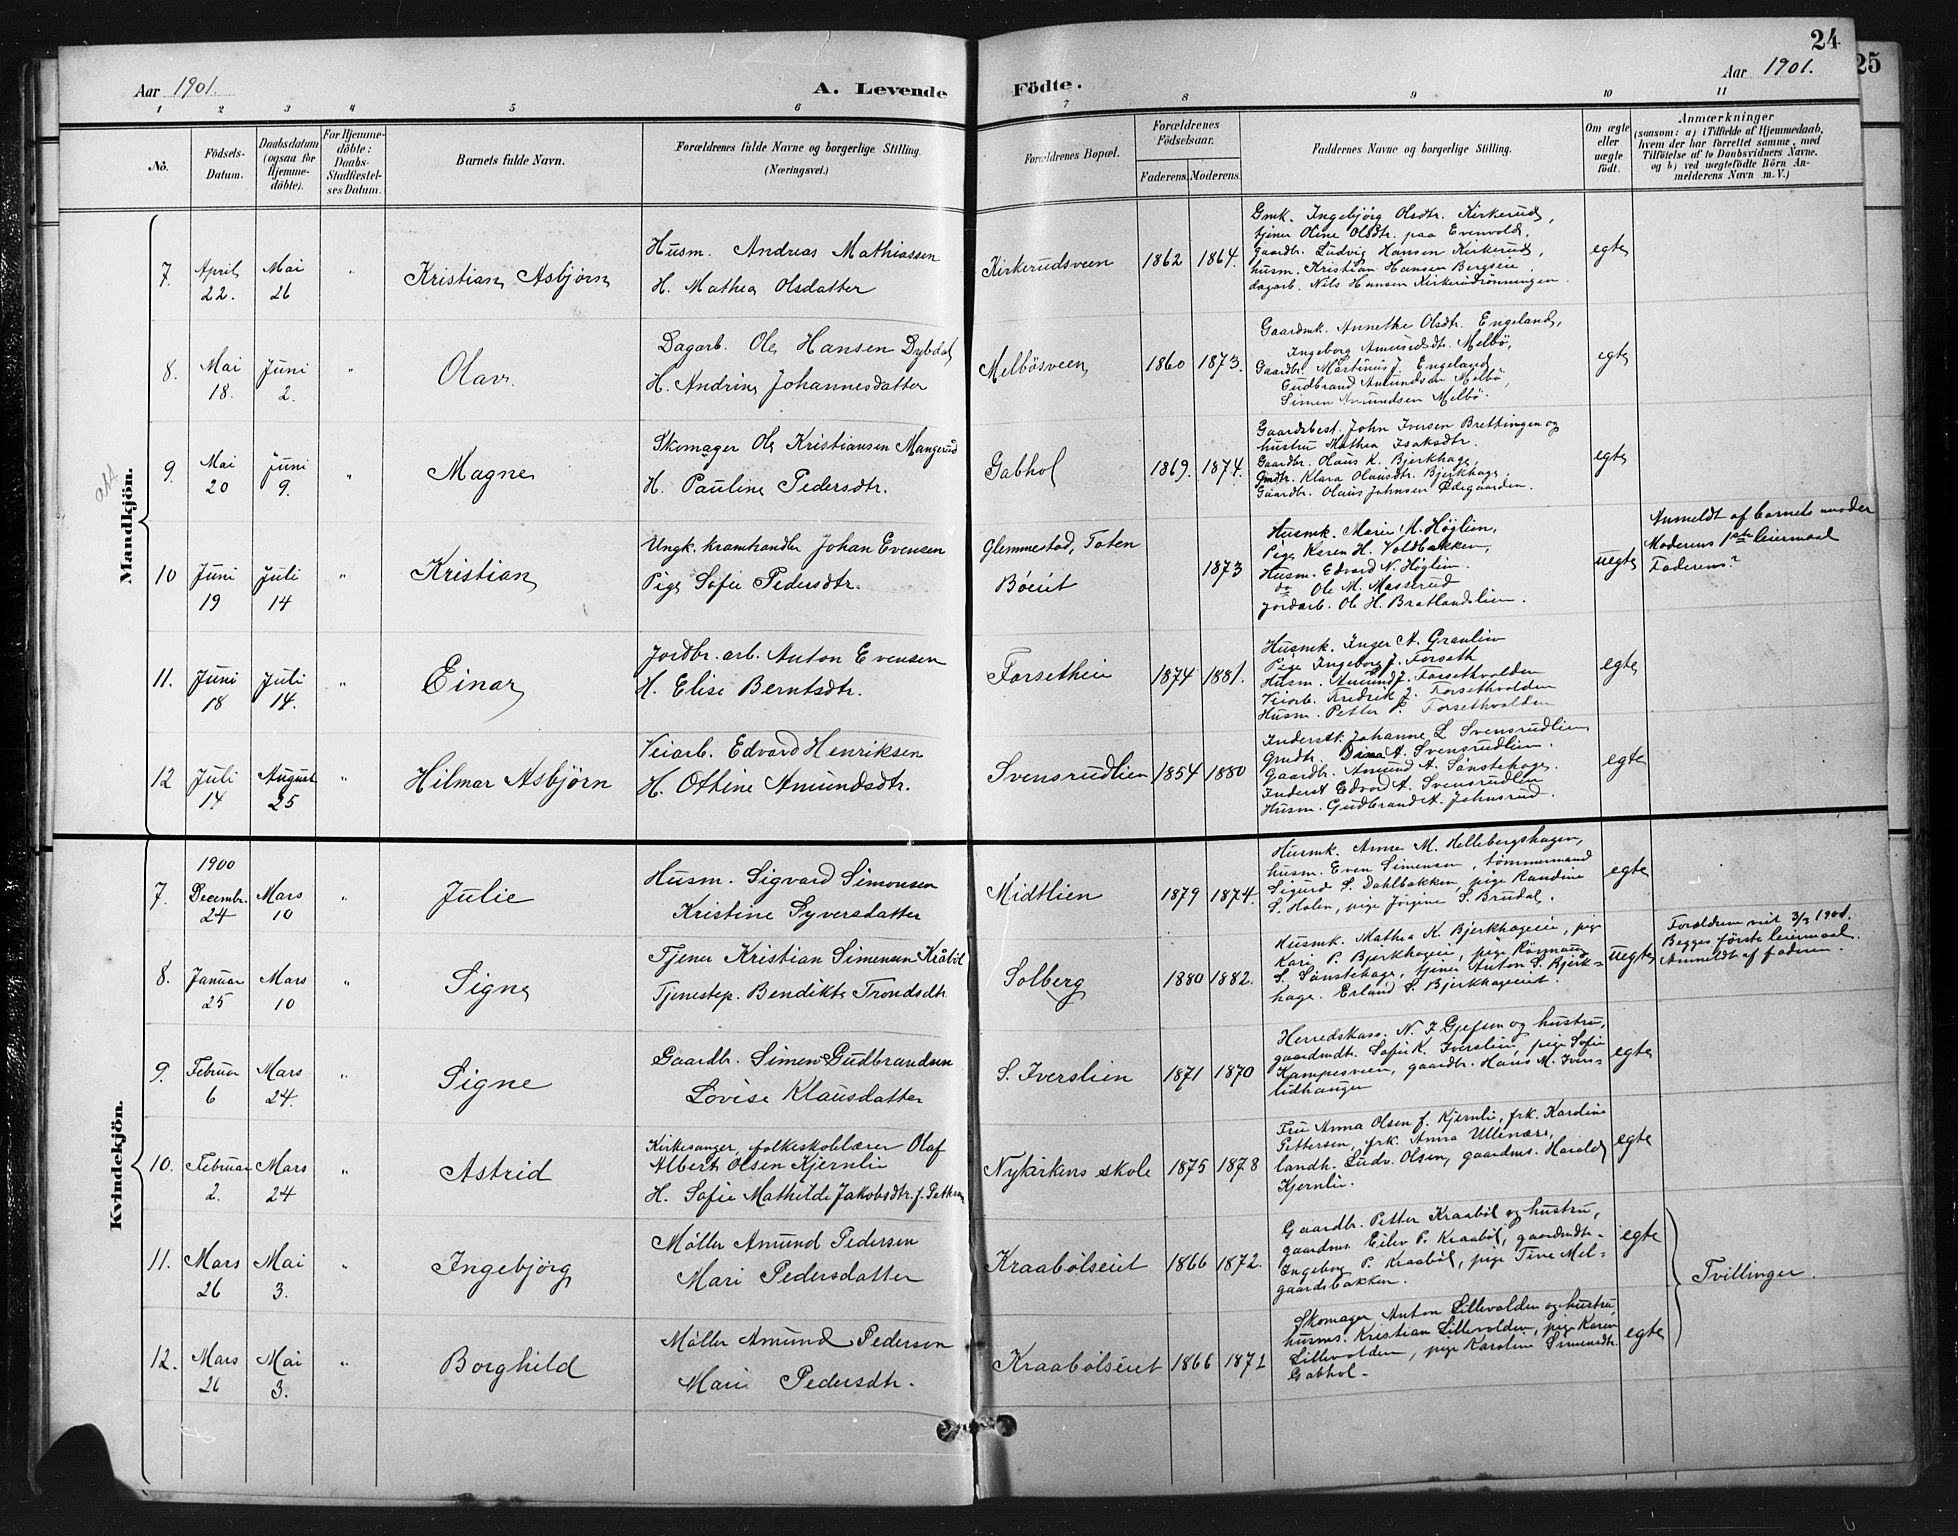 24
25
Aar 1901.
A. Levende
Födte.
Aar 1901.
1 2 3 4 5 6 7 8 9 10 11
No.
Födsels-
Datum.
Daabsdatum
(ogsaa for
Hjemme-
döbte).
For Hjemme-
döbte:
Daabs-
Stadfæstel-
ses Datum.
Barnets fulde Navn.
Forældrenes fulde Navne og borgerlige Stilling.
(Næringsvei.)
Forældrenes Bopæl.
Forældrenes
Födselsaar.
Faderens. Moderens.
Faddernes Navne og borgerlige Stilling.
Om ægte
eller
uægte
födt.
Anmærkninger
(saasom: a) i Tilfælde af Hjemmedaab,
hvem der har forrettet samme, med
Tilföielse af to Daabsvidners Navne.
og b) ved uægtefödte Börn An-
melderens Navn m. V.)
Mandkjön.
7. April 22. Mai 26 " Kristian Asbjørn
Husm. Andreas Mathiassen
H. Mathea Olsdatter
Kirkerudsveen 1862 1864.
Gmk. Ingebjörg Olsdtr. Kirkerud,
tjener Oline Olsdtr. paa Evenvold,
gaardbr. Ludvig Hansen Kirkerud,
husm. Kristian Hansen Bergseie,
dagarb. Nils Hansen Kirkerudrönningen.
egte
8. Mai 18. Juni 2. " Olav.
Dagarb. Ole Hansen Dybdal
H. Andrine Johannesdatter
Melbösveen 1860 1873.
Gaardmk. Annethe Olsdtr. Engeland,
Ingeborg Amundsdtr. Melbö,
Gaardbr. Martinus J. Engeland,
Gudbrand Amundsen Melbö,
Simen Amundsen Melbö.
egte
9. Mai 20 Juni 9. " Magne
Skomager Ole Kristiansen Mangerud
H. Pauline Pedersdtr.
Gabhol 1869. 1874.
Gaardsbest. John Iversen Brettingen og
hustru Mathea Isaksdtr.
Gaardbr. Olaus K. Bjerkhage,
Gmdtr. Klara Olausdtr. Bjerkhage,
Gaardbr. Olaus Johnsen Ødegaarden.
egte
10 Juni 19 Juli 14 " Kristian
Ungk. kramhandler Johan Evensen
Pige Sofie Pedersdtr.
Glemmestad, Toten
Böeiet 1873
Husmk. Marie M. Höglien,
Pige Karen H. Voldbakken,
Husm. Edvard N. Höglien.
do Ole M. Masserud
Jordarb. Ole H. Bratlandslien.
uegte
Anmeldt af barnets moder
Moderens 1ste leiermaal
Faderens?
11. Juni 18 Juli 14. " Einar
Jordbr. arb. Anton Evensen
H. Elise Berntsdtr.
Forsethei 1874 1881.
Husmk. Inger A. Granlien
Pige Ingeborg J. Forseth
Husm. Amund J. Forsethvolden
Veiarb. Fredrik J. Forsethvolden
Husm. Petter P. Forsethvolden
egte
12 Juli 14 August 25 " Hilmar Asbjörn
Veiarb. Edvard Henriksen
H. Othine Amundsdtr.
Svensrudlien 1854 1880
Inderstk. Johanne L Svensrudlien
Gmdtr. Dina A. Svensrudlien.
Gaardbr. Amund A. Sönstehage.
Inderst Edvard A. Svensrudlien
Husm. Gudbrand A. Johnsrud.
egte
Kvindekjön.
7. 1900 Decembr. 24 Mars 10 " Julie
Husm. Sigvard Simonsen
Kristine Syversdatter
Midtlien 1879 1874.
Husmk. Anne M. Hellebergshagen,
husm. Even Simensen, tömmermand
Sigurd S. Dahlbakken, pige Randine
S. Holen, pige Jörgine S. Brudal.
egte
8. Januar 25 Mars 10 " Signe
Tjener Kristian Simensen Kråböl
Tjenestep. Bendikte Trondsdtr
Solberg 1880 1882.
Husmk. Mathea K. Bjerkhageeie, pige
Kari P. Bjerkhageie, pige Rönnaug
S. Sönstehage, tjener Anton S. Bjerk=
hage. Erland S. Bjerkhageeiet.
uegte
Forældrene viet 3/3 1901.
Begges förste leiermaal.
Anmeldt af faderen.
9. Februar 6 Mars 24. " Signe
Gaardbr. Simen Gudbrandsen
Lovise Klausdatter
S. Iverslien 1871 1870
Herredskass. N. J Gjefsen og hustru,
gaardmdtr. Sofie K. Iverslien, pige Sofie
Kampesveen, gaardbr. Hans M. Ivers=
lidhaugen
egte
10. Februar 2. Mars 24 " Astrid
Kirkesanger, folkeskolelærer Olaf
Albert Olsen Kjernlie
H. Sofie Mathilde Jakobsdtr. f. Petters
Nykirkens skole 1875 1878
Fru Anna Olsen f. Kjernlie, frk. Karoline
Pettersen, frk. Anna Ullenære,
landh. Ludv. Olsen, gaardms. Harald
Kjernlie.
egte
11. Mars 26 Mai 3. " Ingebjörg
Möller Amund Pedersen
Mari Pedersdatter
Kraabölseiet 1866 1872.
Gaardbr. Petter Kraaböl og hustru,
gaardms. Eilev P. Kraaböl, gaardmdtr.
Ingeborg P. Kraaböl, pige Tine Mel=
gaardsbakken.
egte
Tvillinger.
12. Mars 26 Mai 3. " Borghild
Möller Amund Pedersen
Mari Pedersdtr.
Kraabölseiet 1866 1872
Skomager Anton Lillevolden og hustru,
husms. Kristian Lillevolden, pige Karen
Lillevolden, pige Karoline Simensdtr.
Gabhol.
egte